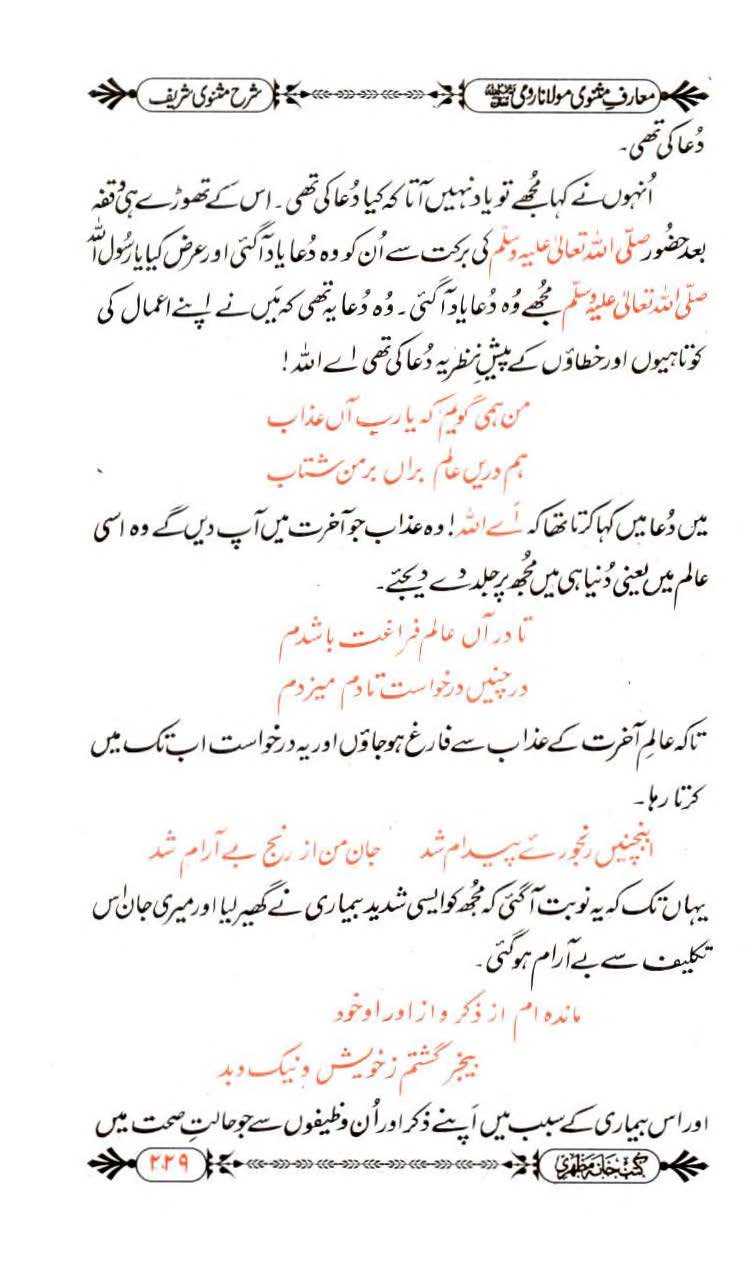 معارفِ مثنوی مولانا رومی    شرح مثنوی شریف
دُعا کی تھی۔
اُنہوں نے کہا مُجھے تو یاد نہیں آتا کہ کیا دُعا کی تھی۔ اس کے تھوڑے ہی وقفہ
بعد حضُور صلّی اللہ تعالیٰ علیہ وسلّم کی برکت سے اُن کو وہ دُعا یاد آگئی اور عرض کیا یا رسُول اللہ
صلّی اللہ تعالیٰ علیہ وسلّم مُجھے وُہ دُعا یاد آگئی۔ وُہ دُعا یہ تھی کہ مَیں نے اپنے اعمال کی
کوتاہیوں اور خطاؤں کے پیشِ نظر یہ دُعا کی تھی اے اللہ!
من ہمی گویم کہ یارب آں عذاب
ہم دریں عالم براں بر من شتاب
میں دُعا میں کہا کرتا تھا کہ اَے اللہ! وہ عذاب جو آخرت میں آپ دیں گے وہ اسی
عالم میں یعنی دُنیا ہی میں مُجھ پر جلد دے دیجئے۔
تا در آں عالم فراغت باشدم
در چنیں درخواست تا دم میزدم
تاکہ عالمِ آخرت کے عذاب سے فارغ ہو جاؤں اور یہ درخواست اب تک میں
کرتا رہا۔
اینچنیں رنجورئے پیدام شد    جانِ من از رنج بے آرام شد
یہاں تک کہ یہ نوبت آگئی کہ مُجھ کو ایسی شدید بیماری نے گھیر لیا اور میری جان اس
تکلیف سے بے آرام ہوگئی۔
ماندہ ام از ذکر و از اوراد خود
بیخبر گشتم ز خویش و نیک و بد
اور اس بیماری کے سبب میں اَپنے ذکر اور اُن وظیفوں سے جو حالتِ صحت میں
کتب خانہ مظہری    ۲۲۹